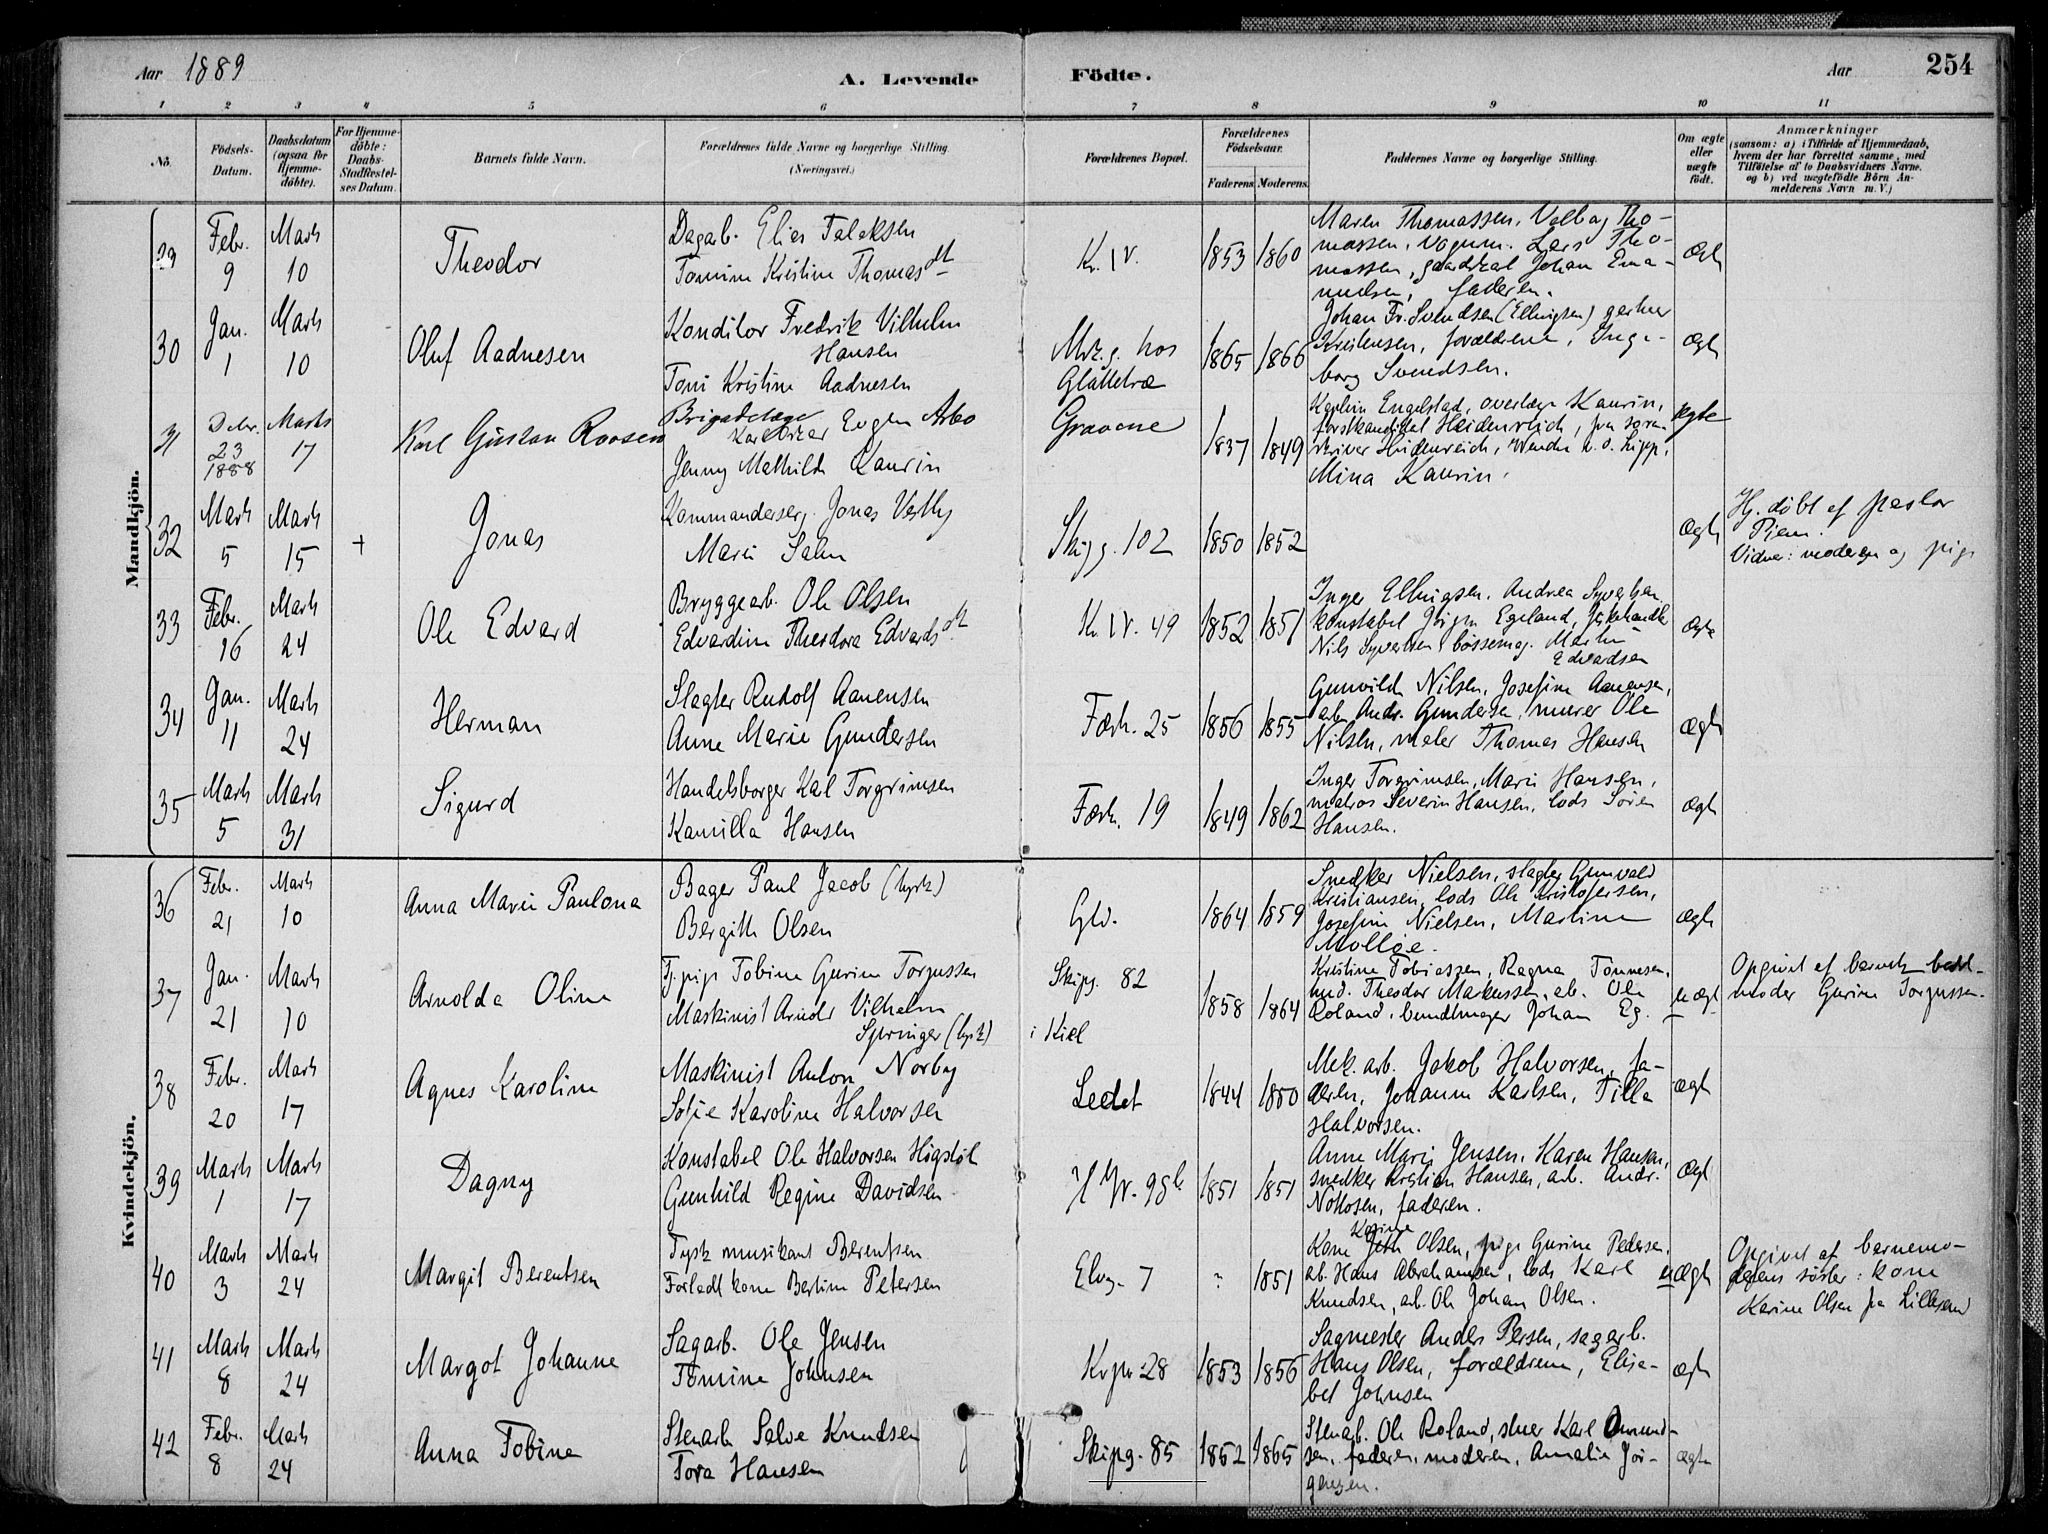 Aar 1889 A. Levende Födte. Aar 254
1 2 3 4 5 6 7 8 9 10 11
No. Födsels-Datum. Daabsdatum (ogsaa for Hjemme-döbte). For Hjemme-döbte: Daabs-Stadfæstel-ses Datum. Barnets fulde Navn. Forældrenes fulde Navne og borgerlige Stilling. (Næringsvei.) Forældrenes Bopæl. Forældrenes Födselsaar. Faderens. Moderens. Faddernes Navne og borgerlige Stilling. Om ægte eller uægte födt. Anmærkninger (saasom: a) i Tilfælde af Hjemmedaab, hvem der har forrettet samme, med Tilföielse af to Daabsvidners Navne. og b) ved uægtefödte Börn An-melderens Navn m.V.)
Mandkjön.
29 Febr. 9 Marts 10 Theodor
Dagarb. Elias Falaksen
Tomine Kristine Thomasdt
Kr. IV. 1853 1860
Maren Thomassen, Valbag Tho-
massen, vognm. Lars Tho-
massen, Johan Ema-
nuelsen, faderen.
Ægte
30 Jan. 1 Marts 10 Oluf Aadnesen
Konditor Fredrik Vilhelm
Hansen
Toni Kristine Aadnesen
hos
Glattetræ
1865 1866
Johan Fr. Svendsen (Ellingsen) gartner
Kristensen, forældrene, Inge-
borg Svendsen.
Ægte
31 Debr. 23 1888 Marts 17 Karl Gustav Roosen
Brigadelæge
Karl Oscar Eugen Arbo
Jenny Mathilde Kaurin
Gravene 1837 1849
Engelstad, overlæge Kaurin,
forstkandidat Heidenreich, fru soren-
skriver Heidenreich,
Mina Kaurin.
Ægte
32 Marts 5 Marts 15 + Jonas
Kommanderserg. Jonas Vestby
Marie Salm
Skipg. 102 1850 1852 Ægte
Hj. døbt af pastor
Vidner: moderen og pige
33 Febr. 16 Marts 24 Ole Edvard
Bryggearb. Ole Olsen
Edvardine Theodora Edvardsdt
Kr. IV. 49 1852 1851
Inger Ellingsen, Andrea Syvertsen,
konstabel Jörgen Egeland,
Nils Syvertsen, bössemag. Martin
Edvardsen
Ægte
34 Jan. 11 Marts 24 Herman
Slagter Rudolf Aanensen
Anne Marie Gundersen
Færh. 25 1856 1855
Gunvild Nilsen, Josefine Aanensen,
arb. Andr. Gundersen, murer Ole
Nilsen, maler Thomas Hansen
Ægte
35 Marts 5 Marts 31 Sigurd
Handelsborger Karl Torgrimsen
Kamilla Hansen
Færh. 19 1849 1862
Inger Torgrimsen, Marie Hansen,
matros Severin Hansen, lods Sören
Hansen.
Ægte
Kvindekjön.
36 Febr. 21 Marts 10 Anna Marie Paulona
Bager Paul Jacob (tysk)
Bergitte Olsen
Glv. 1864 1859
Snedker Nielsen, slagter Gunvald
Kristiansen, lods Ole Kristofersen,
Josefine Nielsen, Martine
Mollöe.
Ægte
37 Jan. 21 Marts 10 Arnolda Oline
Tj.pige Tobine Gurine Torgussen
Maskinist Arnold Vilhelm
Springer (tysk)
Skipg. 82
i Kiel
1858 1864
Kristine Tobiassen, Ragna Tönnesen,
Theodor Makussen, arb. Ole
Roland, bundtmager Johan Eg.
uægte
Opgivet af barnets
moder Gurine Torgussen.
38 Febr. 20 Marts 17 Agnes Karoline
Maskinist Anton Norby
Sofie Karoline Halvorsen
Ledet 1844 1850
Mek. arb. Jakob Halvorsen, fa-
deren, Johanne Karlsen, Tilla
Halvorsen.
Ægte
39 Marts 1 Marts 17 Dagny
Konstabel Ole Halvorsen Högstöl
Gunhild Regine Davidsen
98b 1851 1851
Anne Marie Jensen, Karen Hansen,
snedker Kristian Hansen, arb. Andr.
Nottosen, faderen.
Ægte
40 Marts 3 Marts 24 Margit Berentsen
Tysk musikant Berentsen
Forladt kone Bertine Petersen
Elvg. 7 ? 1851
Karine
Kone Olsen, pige Gurine Pedersen,
arb. Hans Abrahamsen, lods Karl
Knudsen, arb. Ole Johan Olsen.
uægte
Opgivet af barnemo-
derens söster: kone
Karine Olsen fra Lillesand
41 Marts 8 Marts 24 Margot Johanne
Sagarb. Ole Jensen
Tomine Johnsen
28 1853 1856
Sagmester Anders Persen, sagarb.
Hans Olsen, forældrene, Elisa-
bet Johnsen
Ægte
42 Febr. 8 Marts 24 Anna Tobine
Stenarb. Salve Knudsen
Tora Hansen
Skipg. 85 1852 1865
Stenarb. Ole Roland, stuer Karl Omund-
sen, faderen, moderen, Amalie Jör-
gensen.
ægte